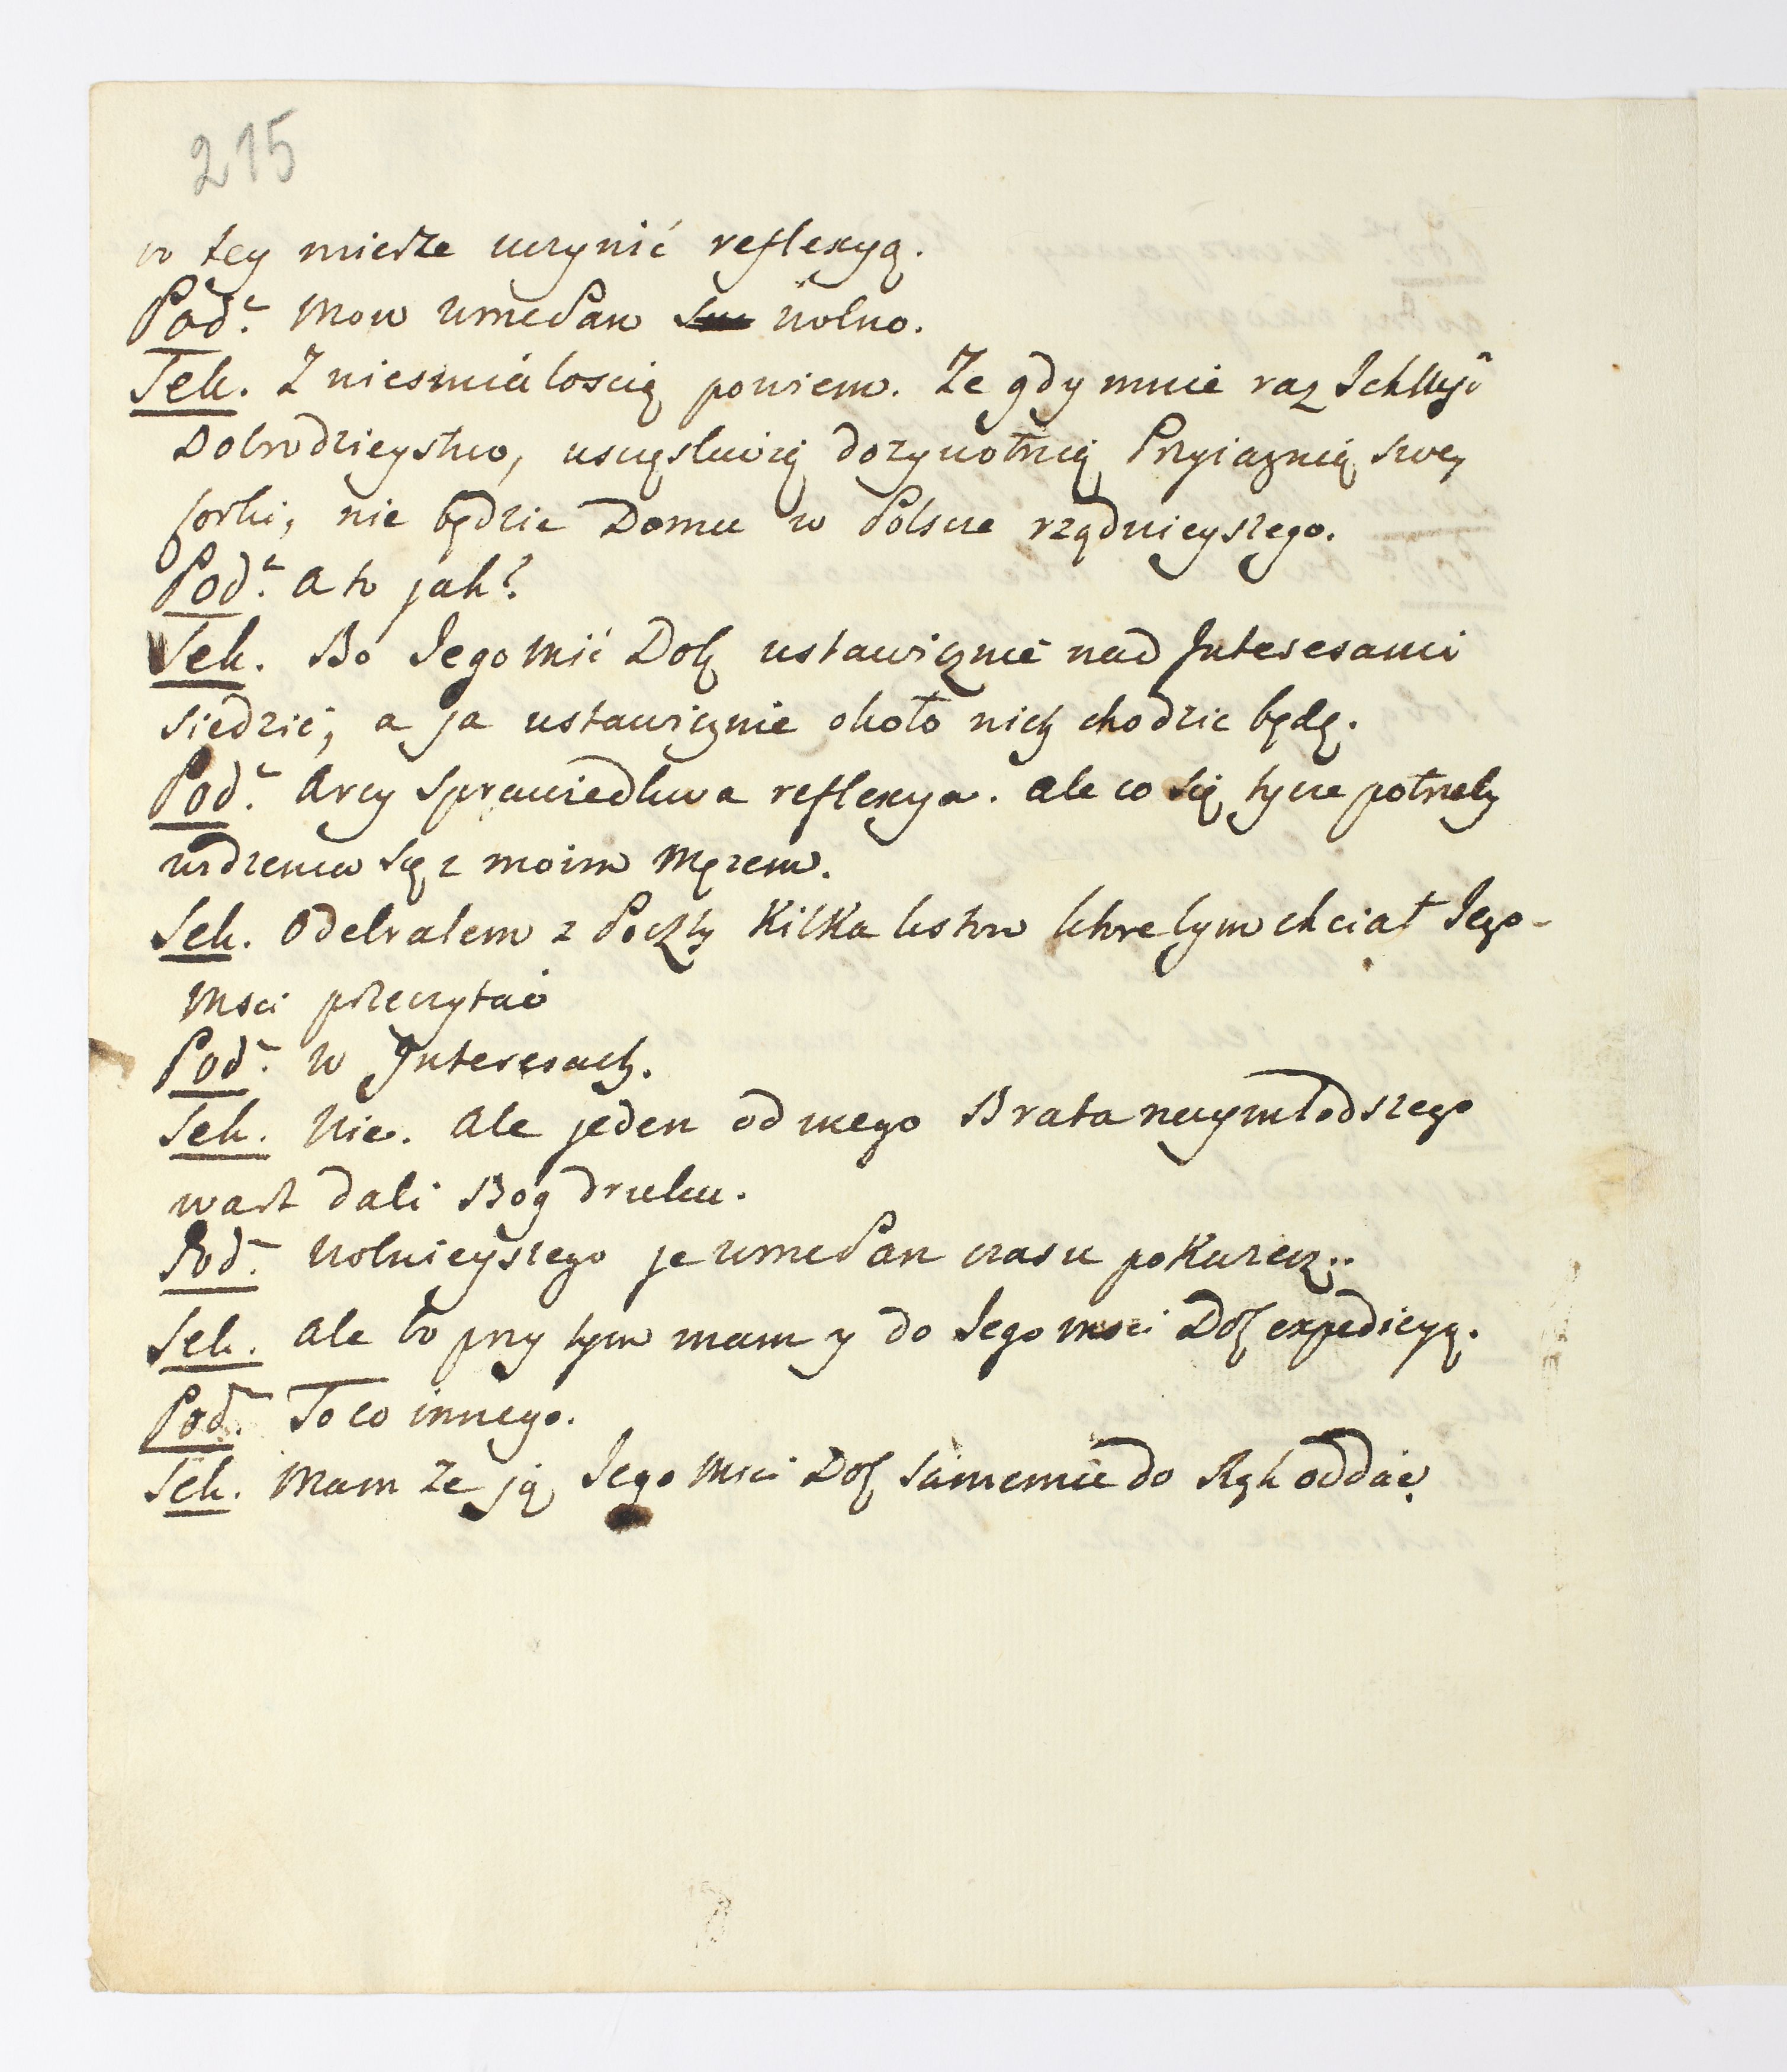 215
w tey mierze uczynić reflexyą.
Podꝰ. Mow WmcPan wolno.
Sek. Z niesmiałoscią powiem. Ze gdy mnie raz Ichmść
Dobrodzieystwo, uszczęsliwią dozywotnią Przyiaznią swey
Corki, nie będzie Domu w Polscze rządnieyszego.
Podꝰ. a to jak?
Sek. Bo Jego Mść Dob ustawicznie nad Interesami
siedzić, a ja ustawicznie około nich chodzic będę.
Podꝰ. Arcy sprawiedliwa reflexya. ale co się tycze potrzeby
widzenia się z moim Męzem.
Sek. Odebrałem z Poczty Kilka listow ktorebym chciał Jego-
Msci przeczytać
Podꝰ. w Interesach.
Sek. Nie. Ale jeden od mego Brata naymłodszego
wart dali Bog druku.
Podꝰ. Wolnieyszego je WmcPan czasu pokazesz..
Sek. Ale bo przy tym mam y do Jego msci Dob expedicyą.
Podꝰ. To co innego.
Sek. Mam ze ją Jego Msci Dob samemu do Rąk oddać